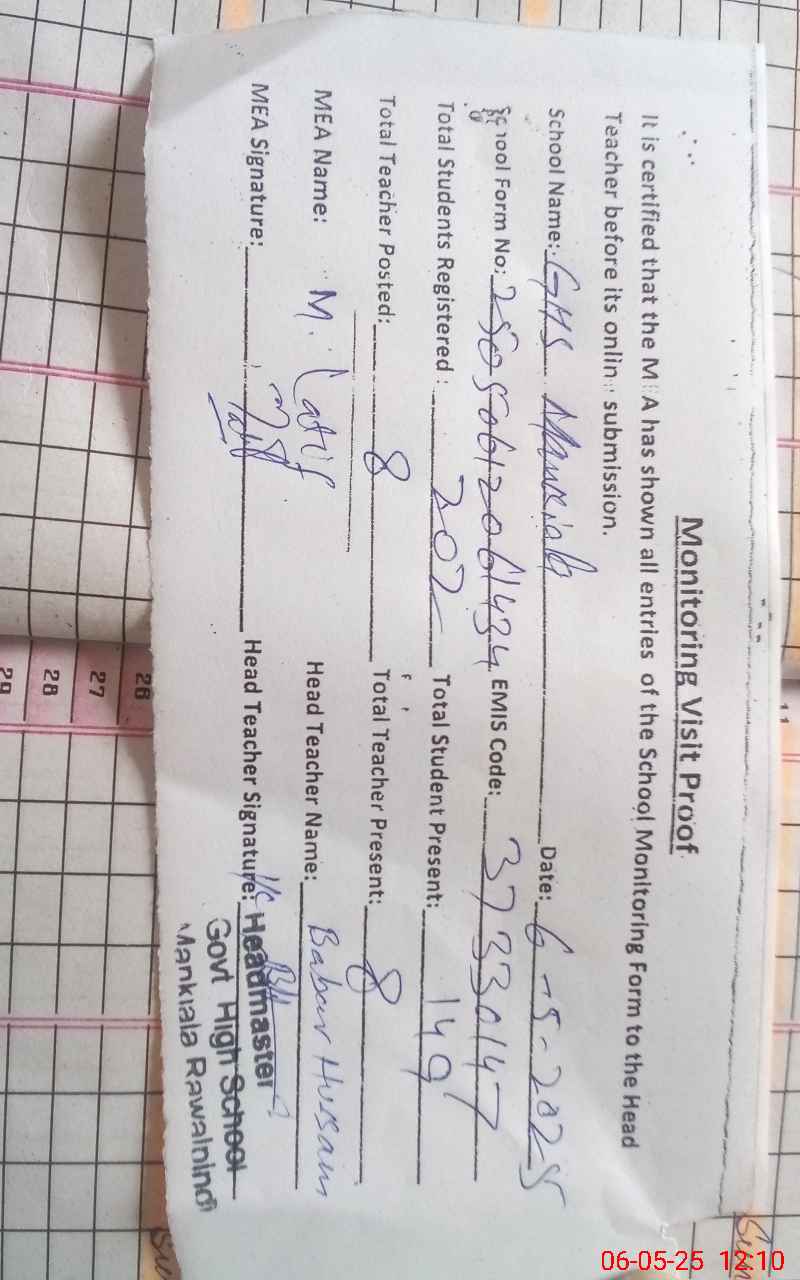 Monitoring Visit Proof
It is certified that the M A has shown all entries of the School Monitoring Form to the Head
Teacher before its onlin submission.
School Name: GHS Mankiala Date: 6-5-2025
School Form No: 25050612061434 EMIS Code: 37330147
Total Students Registered : 202 Total Student Present: 149
Total Teacher Posted: 8 Total Teacher Present: 8
MEA Name: M. Latif Head Teacher Name: Babar Hussain
MEA Signature: Head Teacher Signature: I/c Headmaster
Govt High School
Mankiala Rawalpindi
26
27
28
29
11
06-05-25 12:10